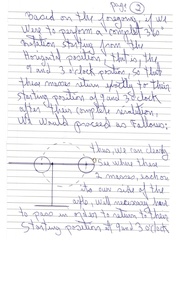 page 2
Based on the foregoing, if we
were to perform a complete 360°
rotation starting from the
Horizontal position that is, the
9 and 3 o'clock position, so that
these masses return exactly to their
starting position of 9 and 3 o'clock
after their complete revolution,
we would proceed as follows;
thus, we can clearly
see where these
2 masses, each on
its own side of the
axle, will necessarily have
to pass in order to return to their
starting position of 9 and 3 o'clock